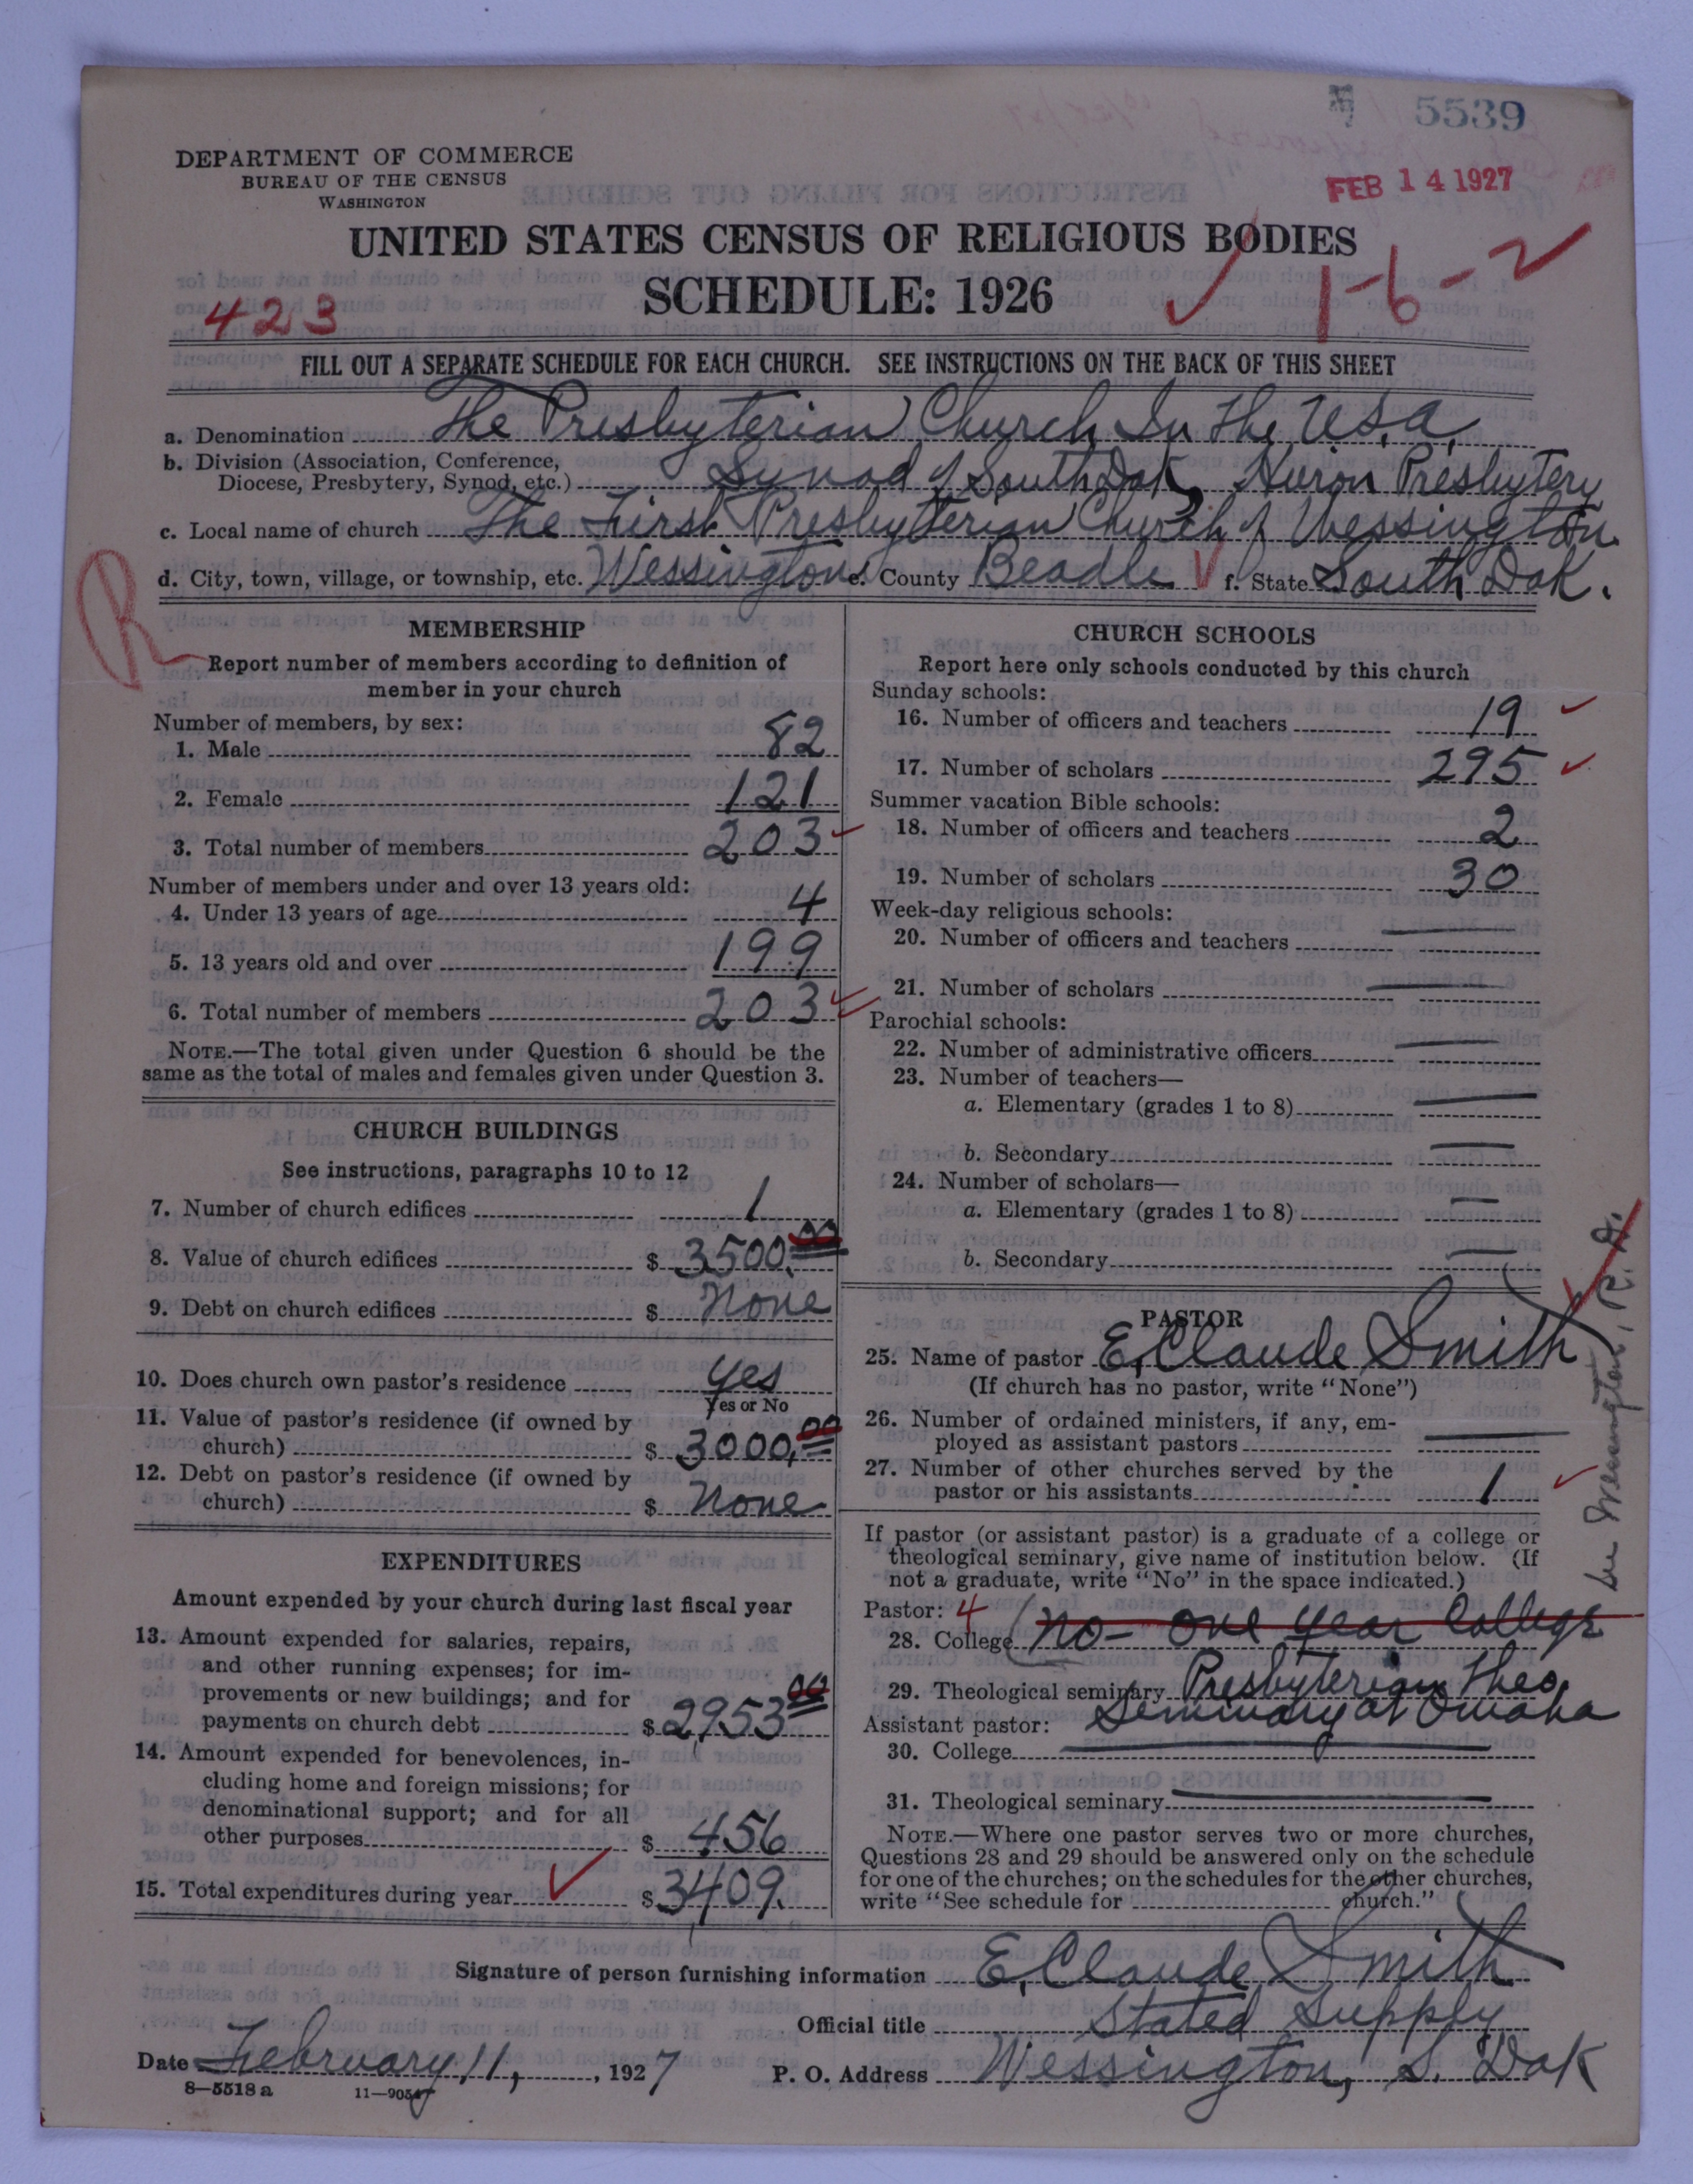 5539
DEPARTMENT OF COMMERCE
BUREAU OF THE CENSUS
WASHINGTON
FEB 14 1927
UNITED STATES CENSUS OF RELIGIOUS BODIES
SCHEDULE: 1926
1-6-2
423
FILL OUT A SEPARATE SCHEDULE FOR EACH CHURCH. SEE INSTRUCTIONS ON THE BACK OF THIS SHEET
a. Denomination The Presbyterian Church In the U.S.A.
b. Division (Association, Conference,
Diocese, Presbytery, Synod, etc.) Synod of South Dak, Huron Presbytery
c. Local name of church The First Presbyterian Church of Wessington
d. City, town, village, or township, etc. Wessington e. County Beadle f. State South Dak.
R
MEMBERSHIP
Report number of members according to definition of
member in your church
Number of members, by sex:
1. Male 82
2. Female 121
3. Total number of members 203
Number of members under and over 13 years old:
4. Under 13 years of age 4
5. 13 years old and over 199
6. Total number of members 203
NOTE.—The total given under Question 6 should be the
same as the total of males and females given under Question 3.
CHURCH BUILDINGS
See instructions, paragraphs 10 to 12
7. Number of church edifices 1
8. Value of church edifices $ 3500.00
9. Debt on church edifices $ None
10. Does church own pastor's residence yes
Yes or No
11. Value of pastor's residence (if owned by
church) $ 3000.00
12. Debt on pastor's residence (if owned by
church) $ None
EXPENDITURES
Amount expended by your church during last fiscal year
13. Amount expended for salaries, repairs,
and other running expenses; for im-
provements or new buildings; and for
payments on church debt $ 2,953 00
14. Amount expended for benevolences, in-
cluding home and foreign missions; for
denominational support; and for all
other purposes $ 456
15. Total expenditures during year $ 3409.
CHURCH SCHOOLS
Report here only schools conducted by this church
Sunday schools:
16. Number of officers and teachers 19
17. Number of scholars 295
Summer vacation Bible schools:
18. Number of officers and teachers 2
19. Number of scholars 30
Week-day religious schools:
20. Number of officers and teachers
21. Number of scholars
Parochial schools:
22. Number of administrative officers
23. Number of teachers—
a. Elementary (grades 1 to 8)
b. Secondary
24. Number of scholars—
a. Elementary (grades 1 to 8)
b. Secondary
PASTOR
25. Name of pastor E. Claude Smith
(If church has no pastor, write "None")
26. Number of ordained ministers, if any, em-
ployed as assistant pastors
27. Number of other churches served by the
pastor or his assistants 1
If pastor (or assistant pastor) is a graduate of a college or
theological seminary, give name of institution below. (If
not a graduate, write "No" in the space indicated.)
Pastor: 4
28. College No - one year College
29. Theological seminary Presbyterian Theo.
Seminary at Omaha
Assistant pastor:
30. College
31. Theological seminary
NOTE.—Where one pastor serves two or more churches,
Questions 28 and 29 should be answered only on the schedule
for one of the churches; on the schedules for the other churches,
write "See schedule for church."
Wessington, R.
Signature of person furnishing information E. Claude Smith
Official title Stated Supply
Date February 11, 1927 P. O. Address Wessington, S. Dak
8—5518 a 11—9054